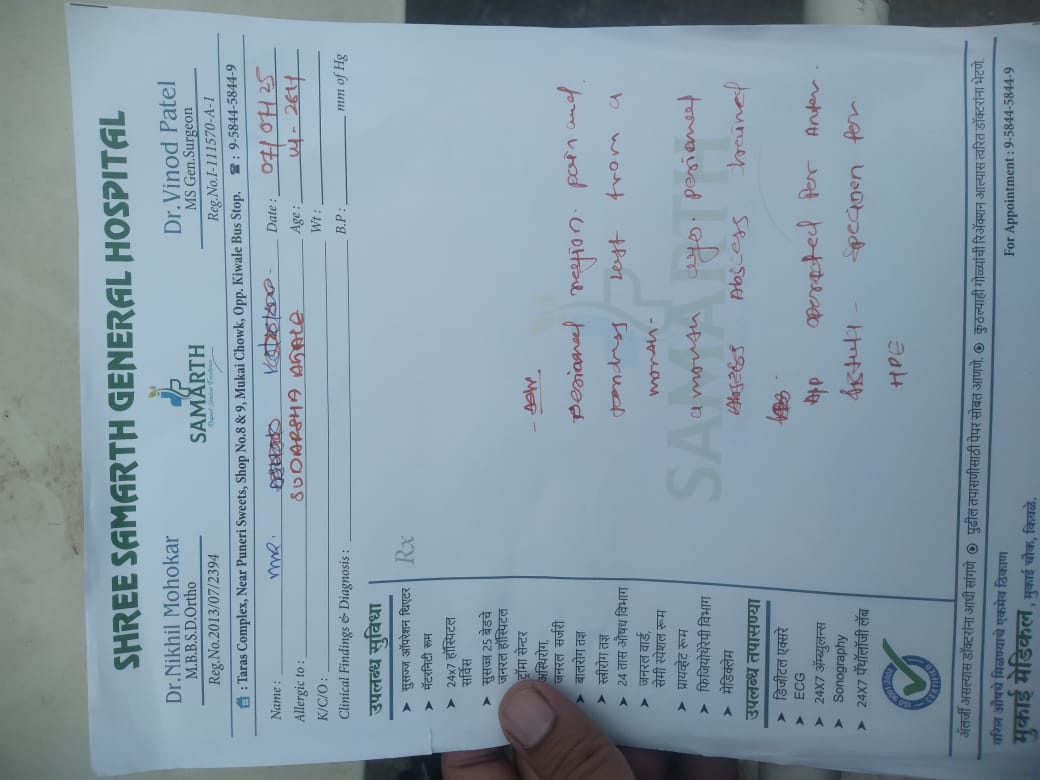 SHREE SAMARTH GENERAL HOSPITAL
Dr.Nikhil Mohokar
M.B.B.S.D.Ortho
Reg.No.2013/07/2394
SAMARTH
Dr.Vinod Patel
MS Gen.Surgeon
Reg.No.I-111570-A-1
: Taras Complex, Near Puneri Sweets, Shop No.8 & 9, Mukai Chowk, Opp. Kiwale Bus Stop. ☎ : 9-5844-5844-9
Name : Mr. Date : 07/07/25
SUDARSHA AGALE
Allergic to : Age :
K/C/O : Wt :
Clinical Findings & Diagnosis : B.P : mm of Hg
उपलब्ध सुविधा
➤ सुसज्ज ऑपरेशन थिएटर
➤ मॅटरनिटी रूम
➤ 24x7 हॉस्पिटल सर्विस
➤ सुसज्ज 25 बेडचे जनरल हॉस्पिटल
ट्रॉमा सेन्टर
अस्थिरोग,
जनरल सर्जरी
➤ बालरोग तज्ञ
➤ स्त्रीरोग तज्ञ
➤ 24 तास औषध विभाग
➤ जनरल वार्ड, सेमी स्पेशल रूम
➤ प्रायव्हेट रूम
➤ फिजियोथेरेपी विभाग
➤ मेडिक्लेम
उपलब्ध तपासण्या
➤ डिजीटल एक्सरे
➤ ECG
➤ 24X7 ॲम्ब्युलन्स
➤ Sonography
➤ 24X7 पॅथॉलॉजी लॅब
Rx
perianal region. pain and
last from a
month.
a month ago. perianal
Abscess drained
operated for
specimen for
HPE
SAMARTH
ॲलर्जी असल्यास डॉक्टरांना आधी सांगणे ⦿ पुढील तपासणीसाठी पेपर सोबत आणणे. ⦿ कुठल्याही गोळ्यांची रिॲक्शन आल्यास त्वरित डॉक्टरांना भेटणे.
वरिल औषधे मिळण्याचे एकमेव ठिकाण
मुकाई मेडिकल, मुकाई चौक, किवळे.
For Appointment : 9-5844-5844-9